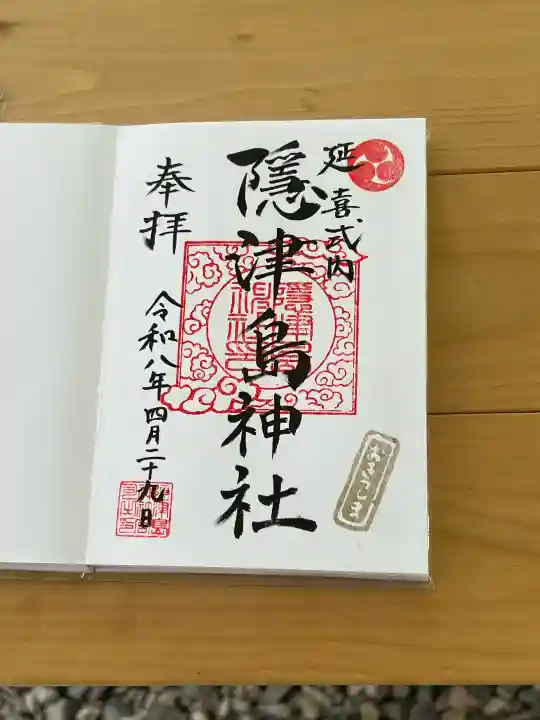 延喜式内
隠津島神社
奉拝
令和八年四月二十九日
おきつしま